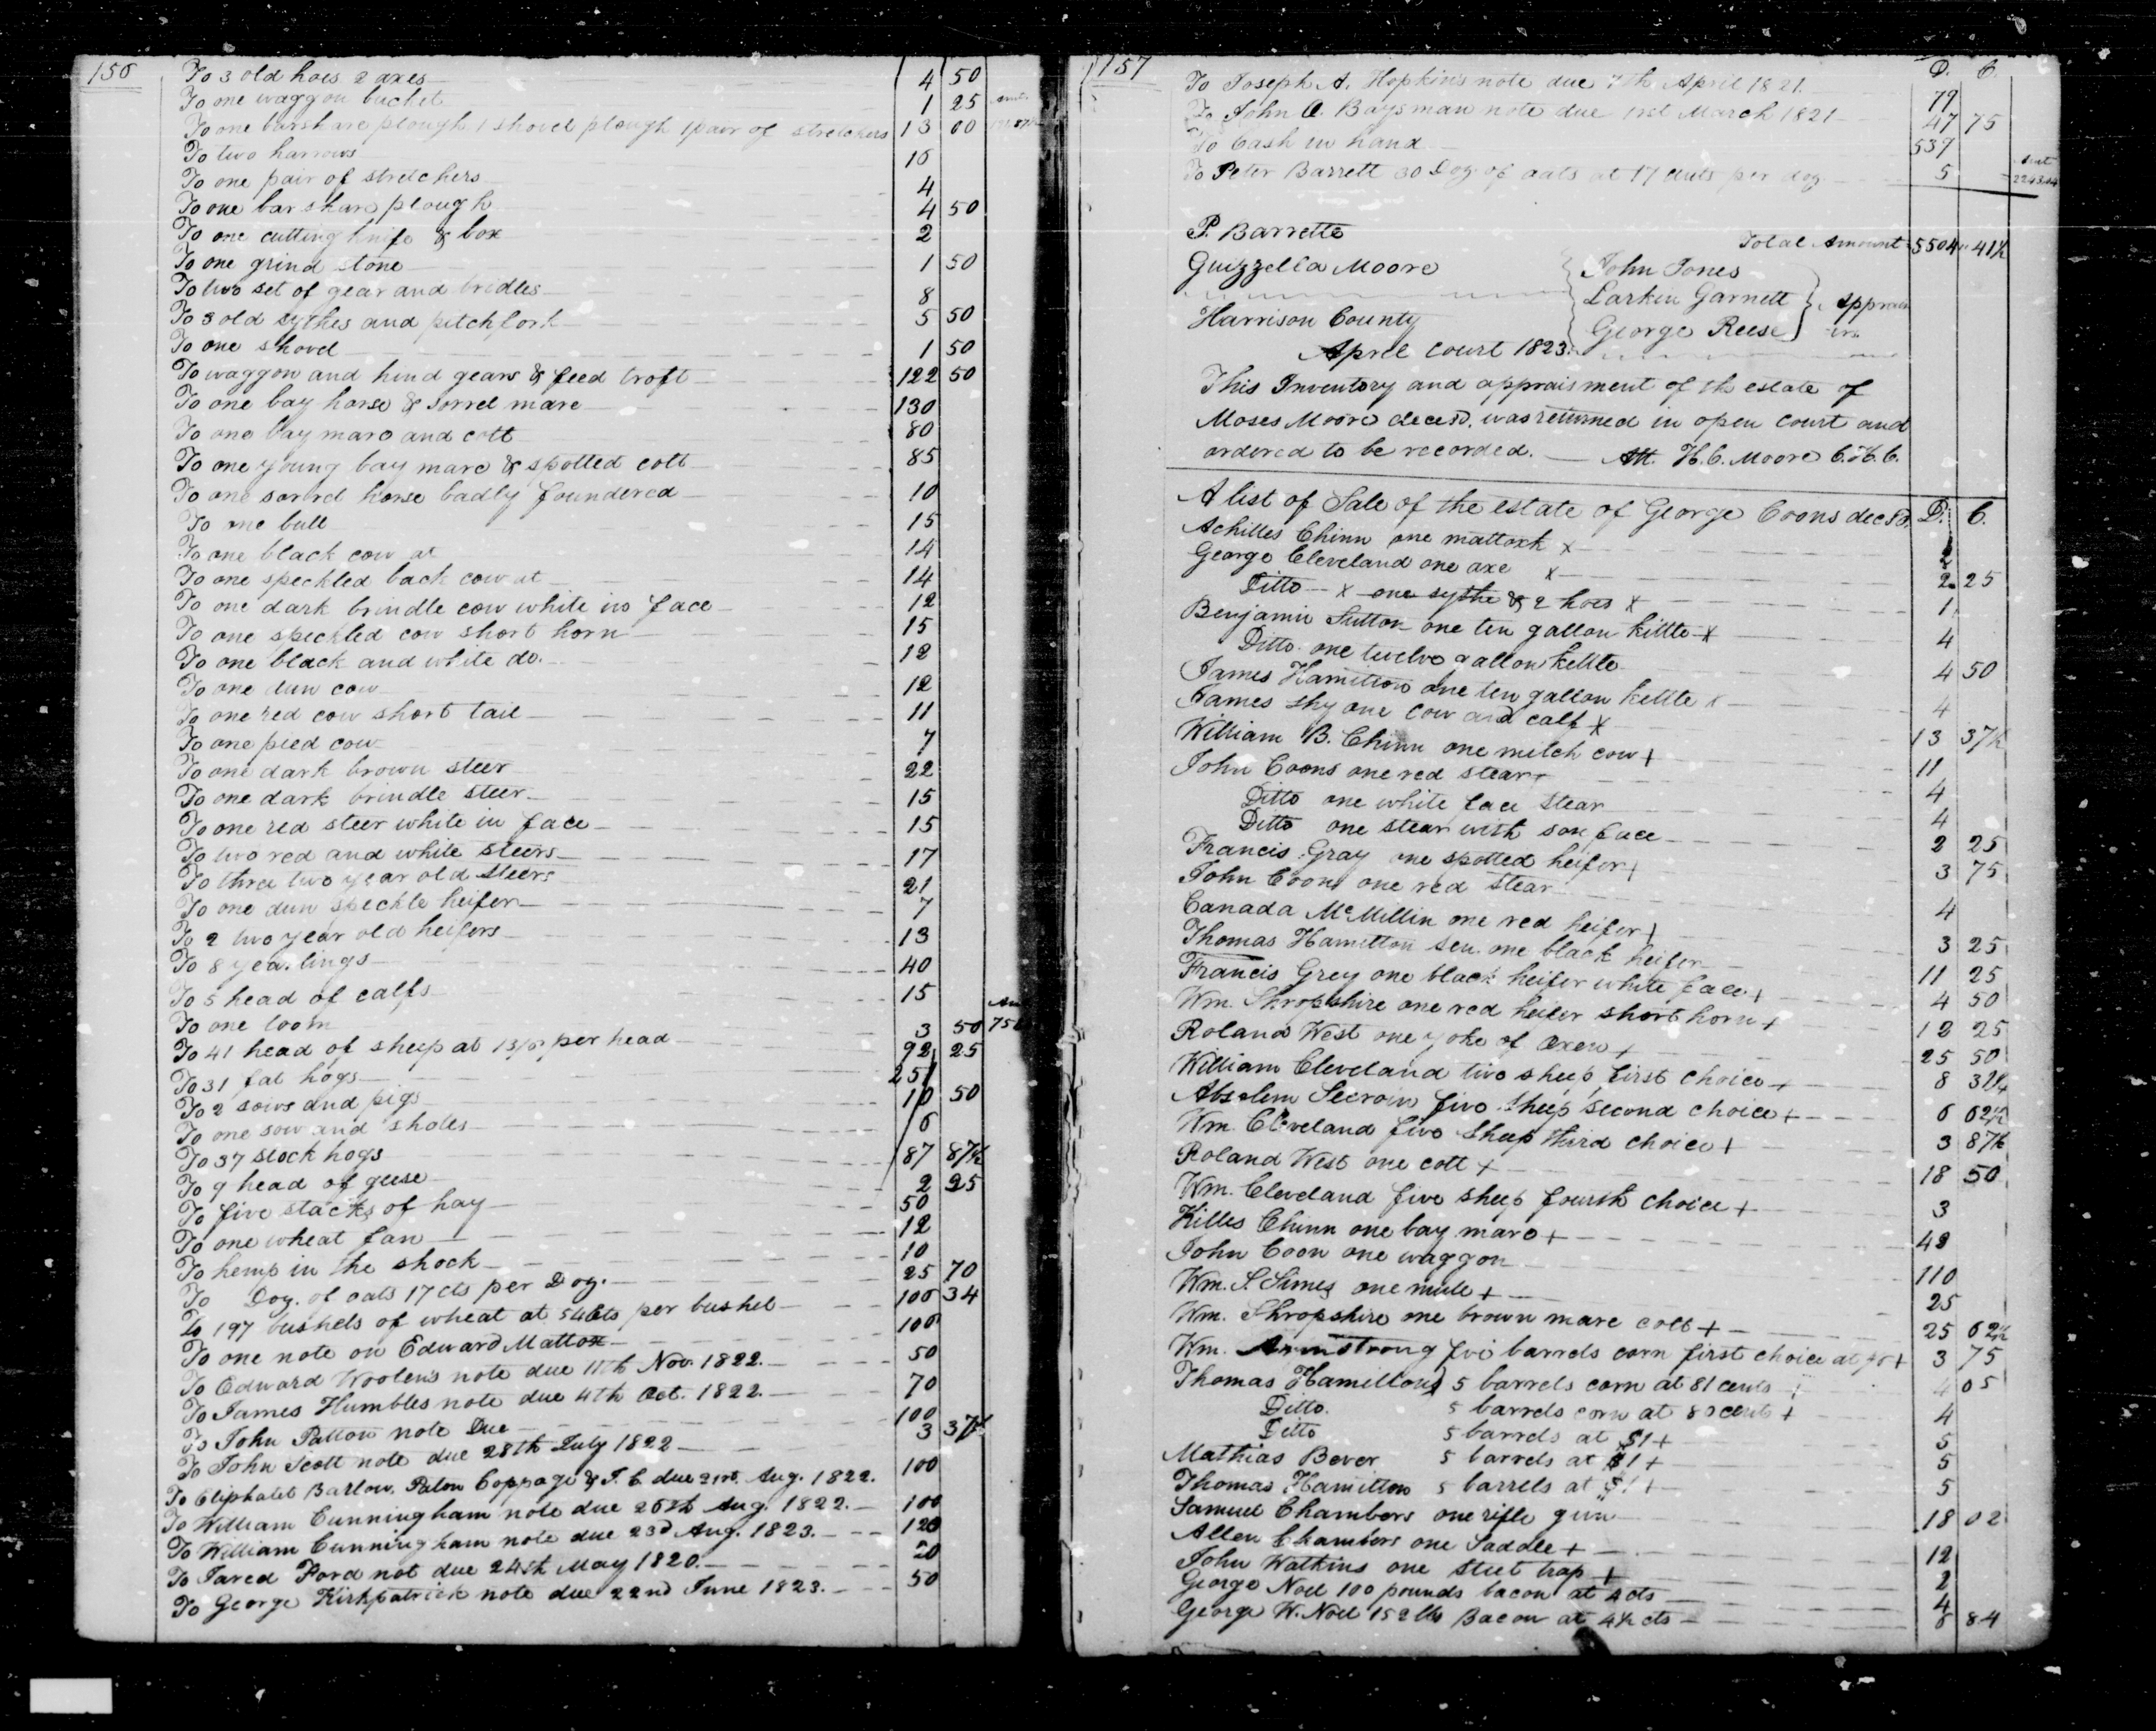 156
To 3 old hoes 2 axes 4 50
To one waggon bucket 1 25
To one barshare plough 1 shovel plough 1 pair of stretchers 13 00
To two harrows 16
To one pair of stretchers 4
To one bar share plough 4 50
To one cutting knife & box 2
To one grind stone 1 50
To two set of gear and bridles 8
To 3 old sythes and pitchfork 5 50
To one shovel 1 50
To waggon and hind gears & feed troft 122 50
To one bay horse & sorrel mare 130
To one bay mare and colt 80
To one young bay mare & spotted colt 85
To one sorrel horse badly foundered 10
To one bull 15
To one black cow at 14
To one speckled back cow at 14
To one dark brindle cow white in face 12
To one speckled cow short horn 15
To one black and white do. 12
To one dun cow 12
To one red cow short tail 11
To one pied cow 7
To one dark brown steer 22
To one dark brindle steer 15
To one red steer white in face 15
To two red and white steers 17
To three two year old steers 21
To one dun speckle heifer 7
To 2 two year old heifers 13
To 8 yearlings 40
To 5 head of calfs 15
To one loom 3 50
To 41 head of sheep at 13/6 per head 92 25
To 31 fat hogs 251
To 2 sows and pigs 10 50
To one sow and shotes 6
To 37 stock hogs 87 87½
To 9 head of geese 2 25
To five stacks of hay 50
To one wheat fan 12
To hemp in the shock 10
To Doz. of oats 17 cts per Doz. 25 70
To 197 bushels of wheat at 54 cts per bushel 106 34
To one note on Edward Mattox 106
To Edward Woolen's note due 11th Nov. 1822. 50
To James Humbles note due 4th Oct. 1822. 70
To John Patton note Due 100
To John Scott note due 28th July 1822 3 37½
To Eliphalet Barlow. Paton Coppage & J. C. due 21st. Aug. 1822. 100
To William Cunningham note due 26th Aug. 1822. 100
To William Cunningham note due 23d Aug. 1823. 120
To Jared Ford not due 24th May 1820. 20
To George Kirkpatrick note due 22nd June 1823. 50
157
D. C.
To Joseph A. Hopkins note due 7th April 1821. 79
To John O. Baysman note due 1rst March 1821 47 75
To Cash in hand 539
To Peter Barrett 30 Doz of oats at 17 cents per doz 5
P. Barrette
Total Amount 5504 41½
Guizzella Moore
John Jones
Larkin Garnett
George Reese
Apprais
ers
Harrison County
April Court 1823.
This Inventory and appraisment of the estate of
Moses Moore deces'd. was returned in open court and
ordered to be recorded. Att. H. C. Moore C.H.C.
A list of Sale of the estate of George Coons decsd. D. C.
Achilles Chinn one mattock x 2
George Cleveland one axe x 2 25
Ditto x one sythe & 2 hoes x 1
Benjamin Sutton one ten gallon kittle x 4
Ditto one twelve gallon kettle 4 50
James Hamilton one ten gallon kettle x 4
James Shy one cow and calf x 13 37½
William B. Chinn one milch cow + 11
John Coons one red stear + 4
Ditto one white face stear 4
Ditto one stear with some face 2 25
Francis Gray one spotted heifer + 3 75
John Coons one red stear 4
Canada McMillin one red heifer + 3 25
Thomas Hamilton sen. one black heifer 11 25
Francis Grey one black heifer white face + 4 50
Wm. Shropshire one red heifer short horn + 12 25
Roland West one yoke of Oxen + 25 50
William Cleveland two sheep first choice + 8 31¼
Absolem five sheep second choice + 6 62½
Wm. Cleveland five sheep third choice + 3 87½
Roland West one colt + 18 50
Wm. Cleveland five sheep fourth choice + 3
Killes Chinn one bay mare + 42
John Coon one waggon 110
Wm. S. Simes one mule + 25
Wm. Shropshire one brown mare colt + 25 62½
Wm. Armstrong five barrels corn first choice at + 3 75
Thomas Hamilton 5 barrels corn at 81 cents + 4 05
Ditto. 5 barrels corn at 80 cents + 4
Ditto 5 barrels at $1 + 5
Mathias Bever 5 barrels at $1 + 5
Thomas Hamilton 5 barrels at $1 + 5
Samuel Chambers one rifle gun 18 02
Allen Chambers one Saddle + 12
John Watkins one steel trap + 2
George Noel 100 pounds bacon at 4 cts 4
George W. Noel 152 lbs Bacon at 4½ cts 6 84